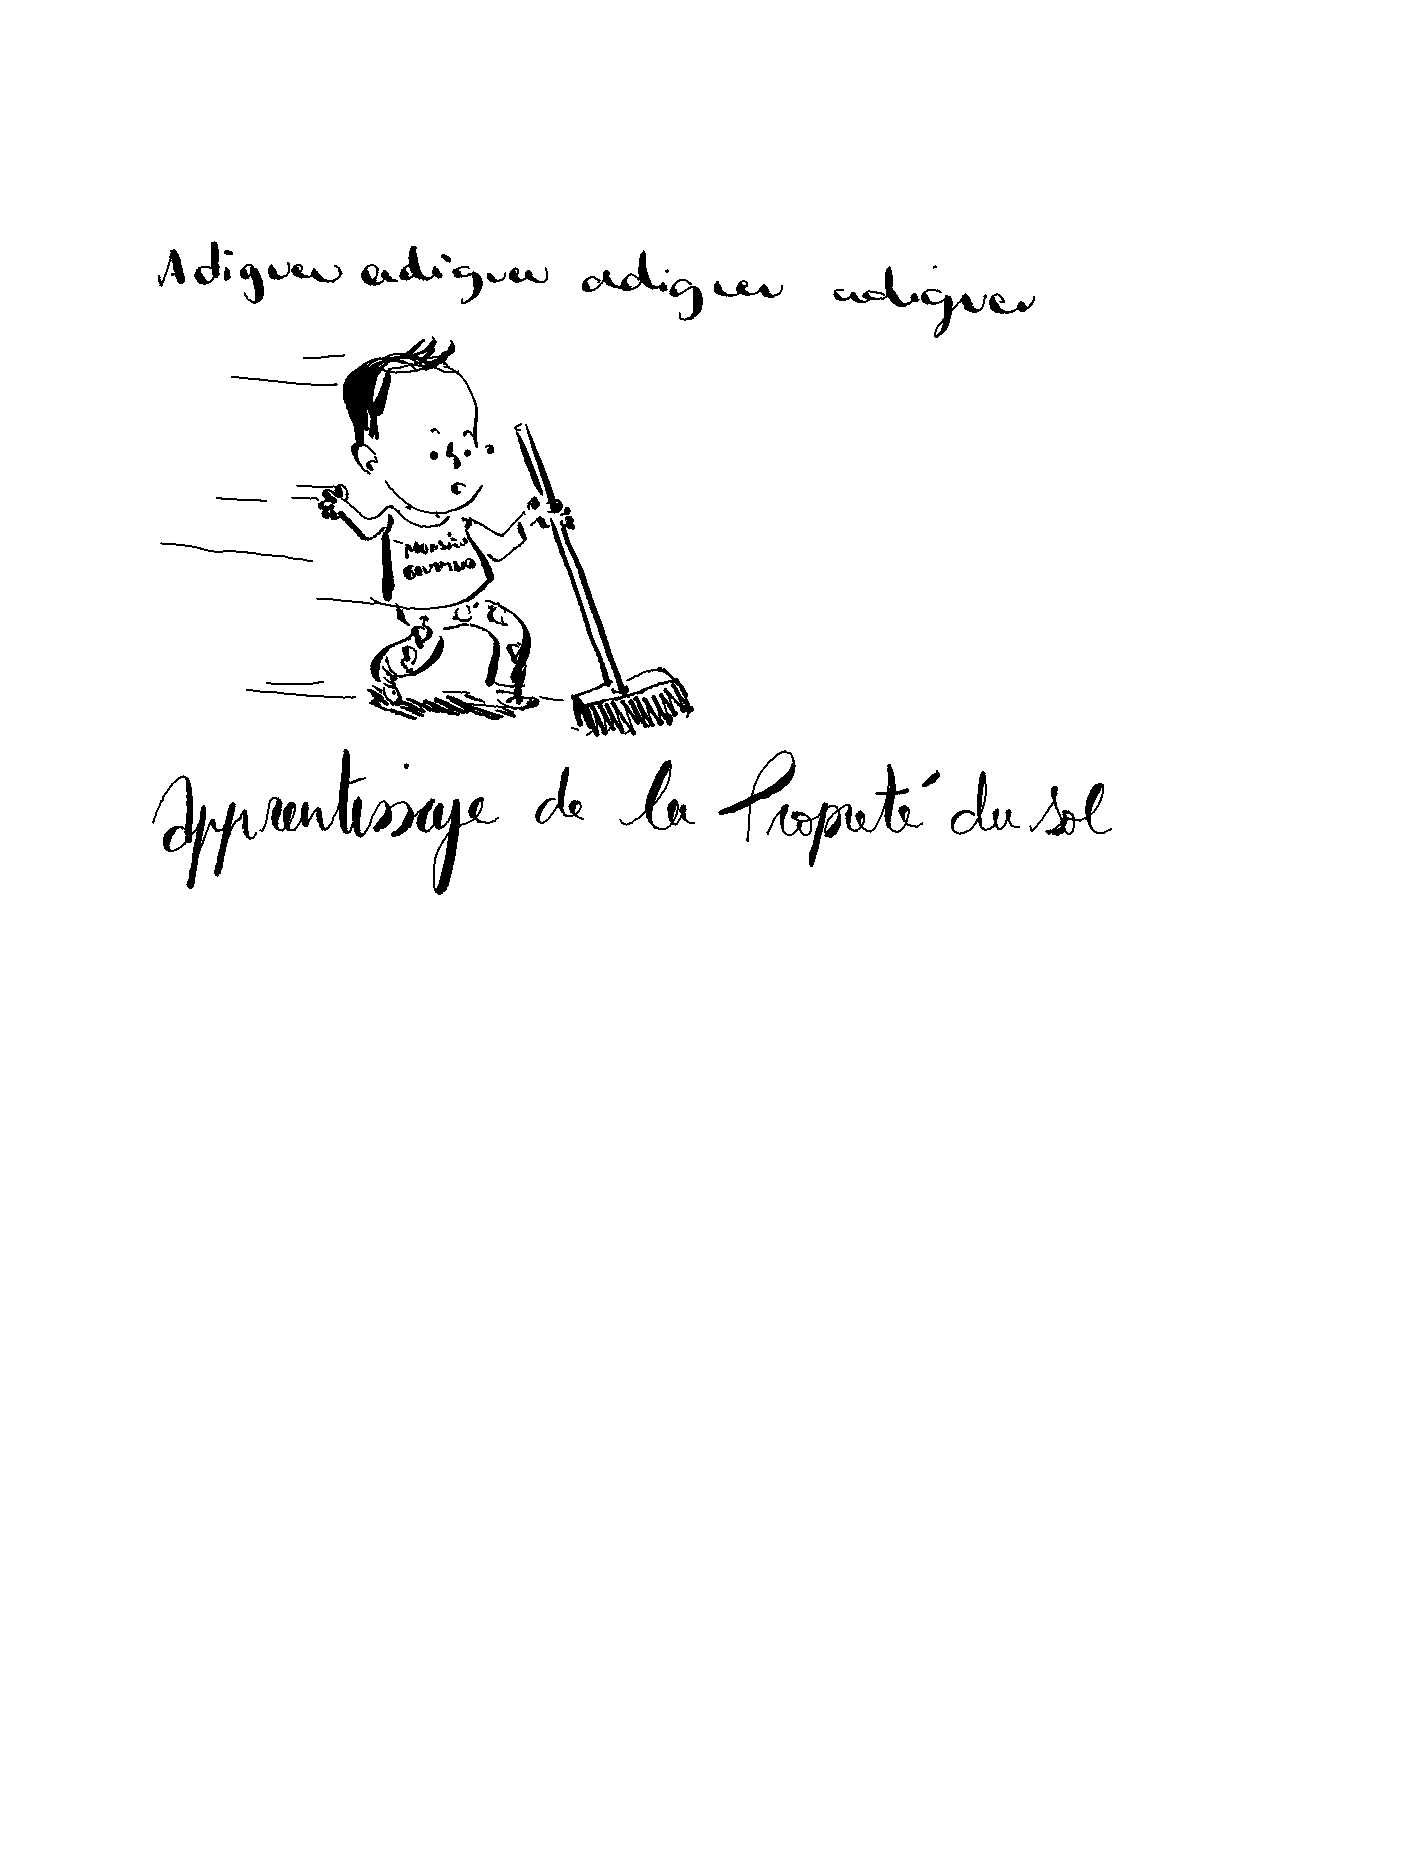 Adiguer adiguer adiguer adiguer
Apprentissage de la Propreté du sol